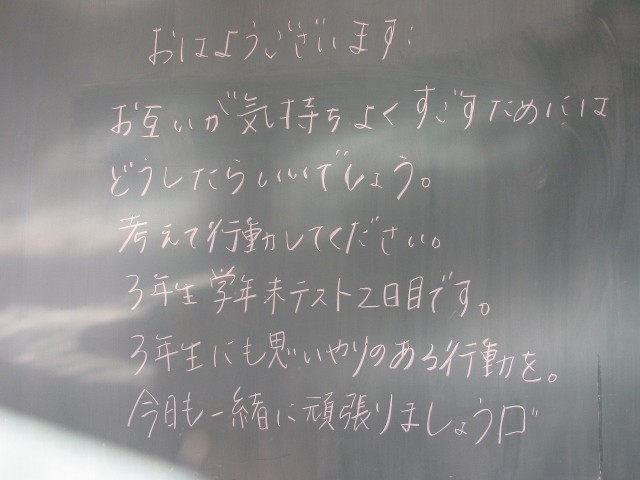 おはようございます:
お互いが気持ちよくすごすためには
どうしたらいいでしょう。
考えて行動してください。
3年生学年末テスト2日目です。
3年生にも思いやりのある行動を。
今日も一緒に頑張りましょう